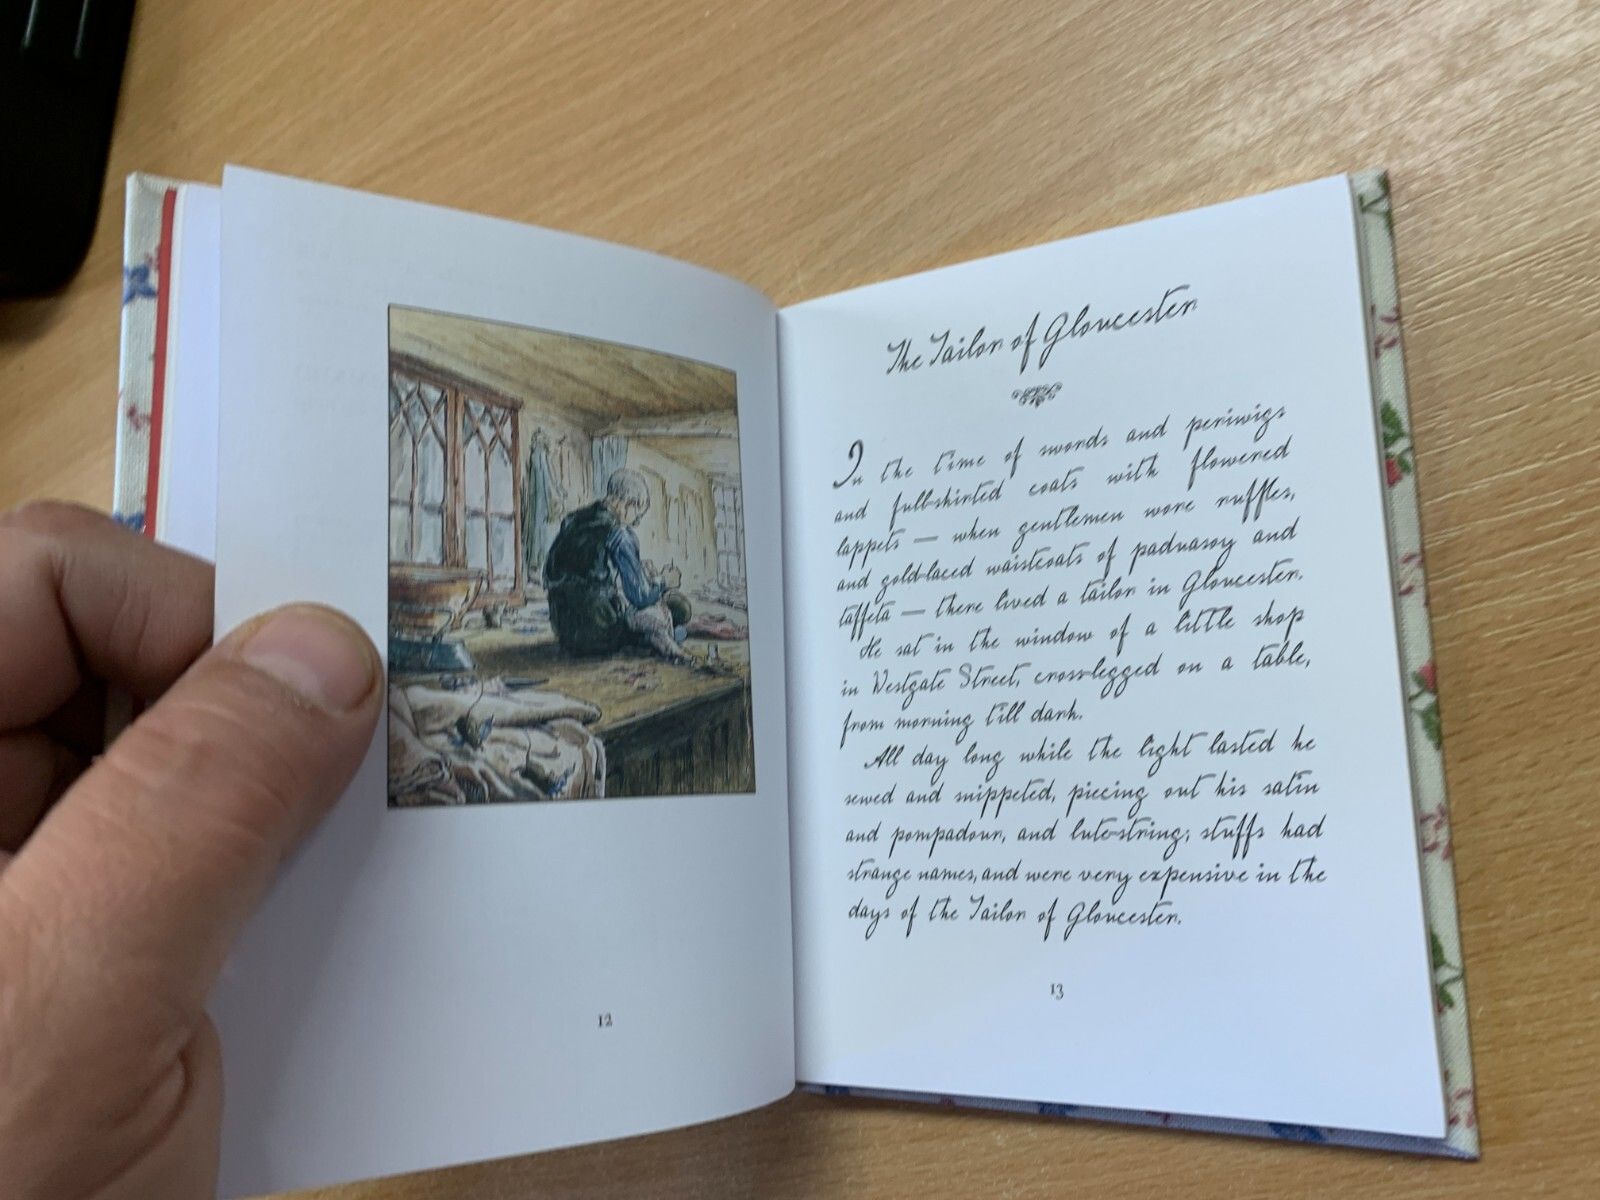 12
The Tailor of Gloucester
In the time of swords and periwigs
and full-skirted coats with flowered
lappets — when gentlemen wore ruffles,
and gold-laced waistcoats of paduasoy and
taffeta — there lived a tailor in Gloucester.
He sat in the window of a little shop
in Westgate Street, cross-legged on a table,
from morning till dark.
All day long while the light lasted he
sewed and snippeted, piecing out his satin
and pompadour, and lute-string; stuffs had
strange names, and were very expensive in the
days of the Tailor of Gloucester.
13